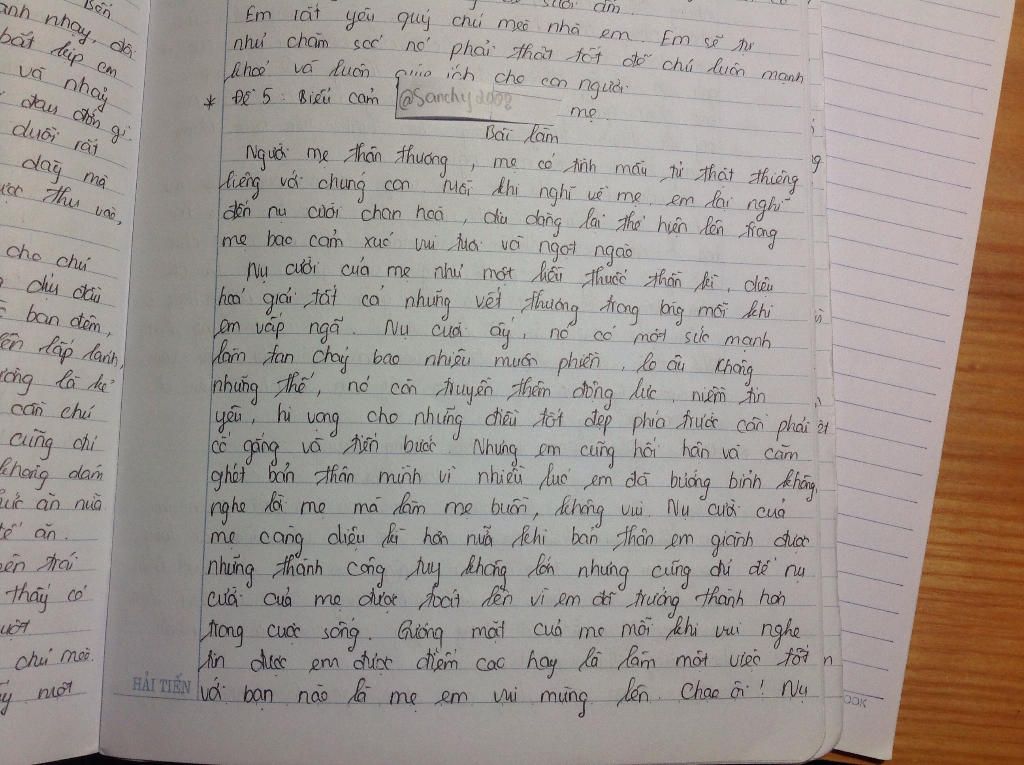 Bến
anh nhạy, đôi
bắt đúp em
và nhảy
đau đớn gì
đuôi rất
dạg mà
thu vào,
cho chú
dịu dàu
ban đêm,
lấp lanh,
là kẻ
căn chú
cũng chỉ
khong dám
ức ăn nuă
tế ăn.
trái
thấy có
uột
chú mèo.
nuột
suởi ấm
Em rất yêu quý chú meò nhà em. Em sẽ tự
như chăm soć nó phải thật tốt để chú luôn mạnh
khoẻ và luôn giúp ích cho con người
* Đề 5: Biểu cảm @Sanchy2008 mẹ
Baì làm
Người mẹ thân thương, mẹ có tình mẫu tử thật thiêng
liêng với chúng con. Mỗi khi nghĩ về mẹ, em lại nghĩ
đến nụ cười chan hoà, dịu dàng lại thể hiện lên trong
mẹ bao cảm xuć vui tươi và ngọt ngào
Nụ cười của mẹ như một liều thuốc thần kì, diệu
hoá giải tất cả những vết thương trong lòng mỗi khi
em vấp ngã. Nụ cười ấy, nó có một sức mạnh
làm tan chảy bao nhiêu muộn phiền, lo âu. Không
những thế, nó còn truyền thêm động lực, niềm tin
yêu, hi vọng cho những điều tốt đẹp phía trước cần phải
cố gắng và tiến bước. Nhưng em cũng hối hận và căm
ghét bản thân mình vì nhiều luć em đã bướng bỉnh không
nghe lời mẹ mà làm mẹ buồn, không vui. Nụ cười của
mẹ càng diệu kì hơn nữa khi bản thân em giành được
những thành công tuy không lớn nhưng cũng đủ để nụ
cười của mẹ được toát lên vì em đã trưởng thành hơn
trong cuộc sống. Gương mặt của mẹ mỗi khi vui nghe
tin được em được điểm cao hay là làm một việc tốt
với bạn nào là mẹ em vui mừng lên. Chao ôi! Nụ
HẢI TIẾN